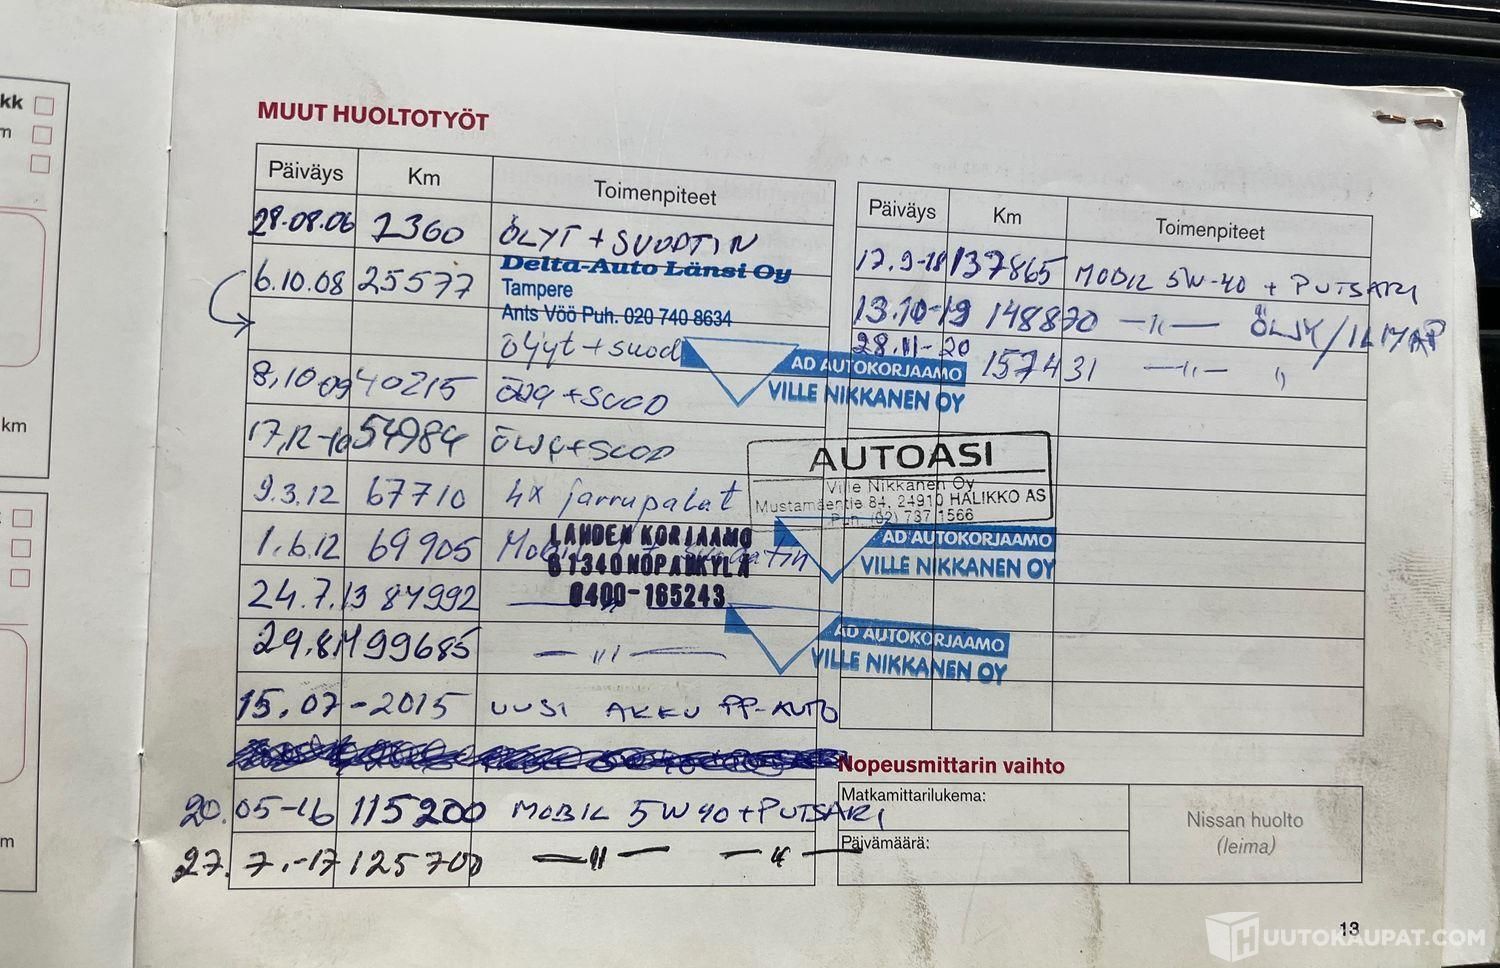 kk
m
km
m
MUUT HUOLTOTYÖT
Päiväys Km Toimenpiteet
28.08.06 2360 ÖLYT + SUODATIN
6.10.08 25577 Delta-Auto Länsi Oy
Tampere
Ants Vöö Puh. 020 740 8634
Öljyt + suod
8,10 09 40215 + SUOD
17,12-10 54984 + SUOD
9.3.12 67710 4x jarrupalat
1.6.12 69905
LAHDEN KORJAAMO
61340 NOPANKYLÄ
0400-165243
24.7.13 84992 —"—
29.8.14 99685 —"—
15.07-2015 UUSI AKKU PP-AUTO
20.05-16 115200 MOBIL 5W40 + PUTSARI
27.7.-17 125700 —"— —"—
Päiväys Km Toimenpiteet
17.9-18 137865 MOBIL 5W-40 + PUTSARI
13.10-19 148870 —"— ÖLJY/ILMA
28.11-20 157431 —"— "
AD AUTOKORJAAMO
VILLE NIKKANEN OY
AUTOASI
Ville Nikkanen Oy
Mustamäentie 84, 24910 HALIKKO AS
Puh. (02) 737 1566
AD AUTOKORJAAMO
VILLE NIKKANEN OY
AD AUTOKORJAAMO
VILLE NIKKANEN OY
Nopeusmittarin vaihto
Matkamittarilukema:
Päivämäärä:
Nissan huolto
(leima)
13
HUUTOKAUPAT.COM